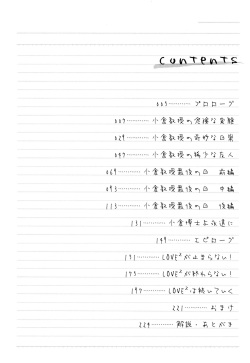 contents
003………… プロローグ
007………… 小倉教授の危険な実験
029………… 小倉教授の奇妙な日常
047………… 小倉教授の稀少な友人
069………… 小倉教授最後の日 前編
093………… 小倉教授最後の日 中編
113………… 小倉教授最後の日 後編
131………… 小倉博士よ永遠に
149………… エピローグ
151………… LOVE²が止まらない!
173………… LOVE²が終わらない!
197………… LOVE²は続いていく
221………… おまけ
224………… 解説・あとがき